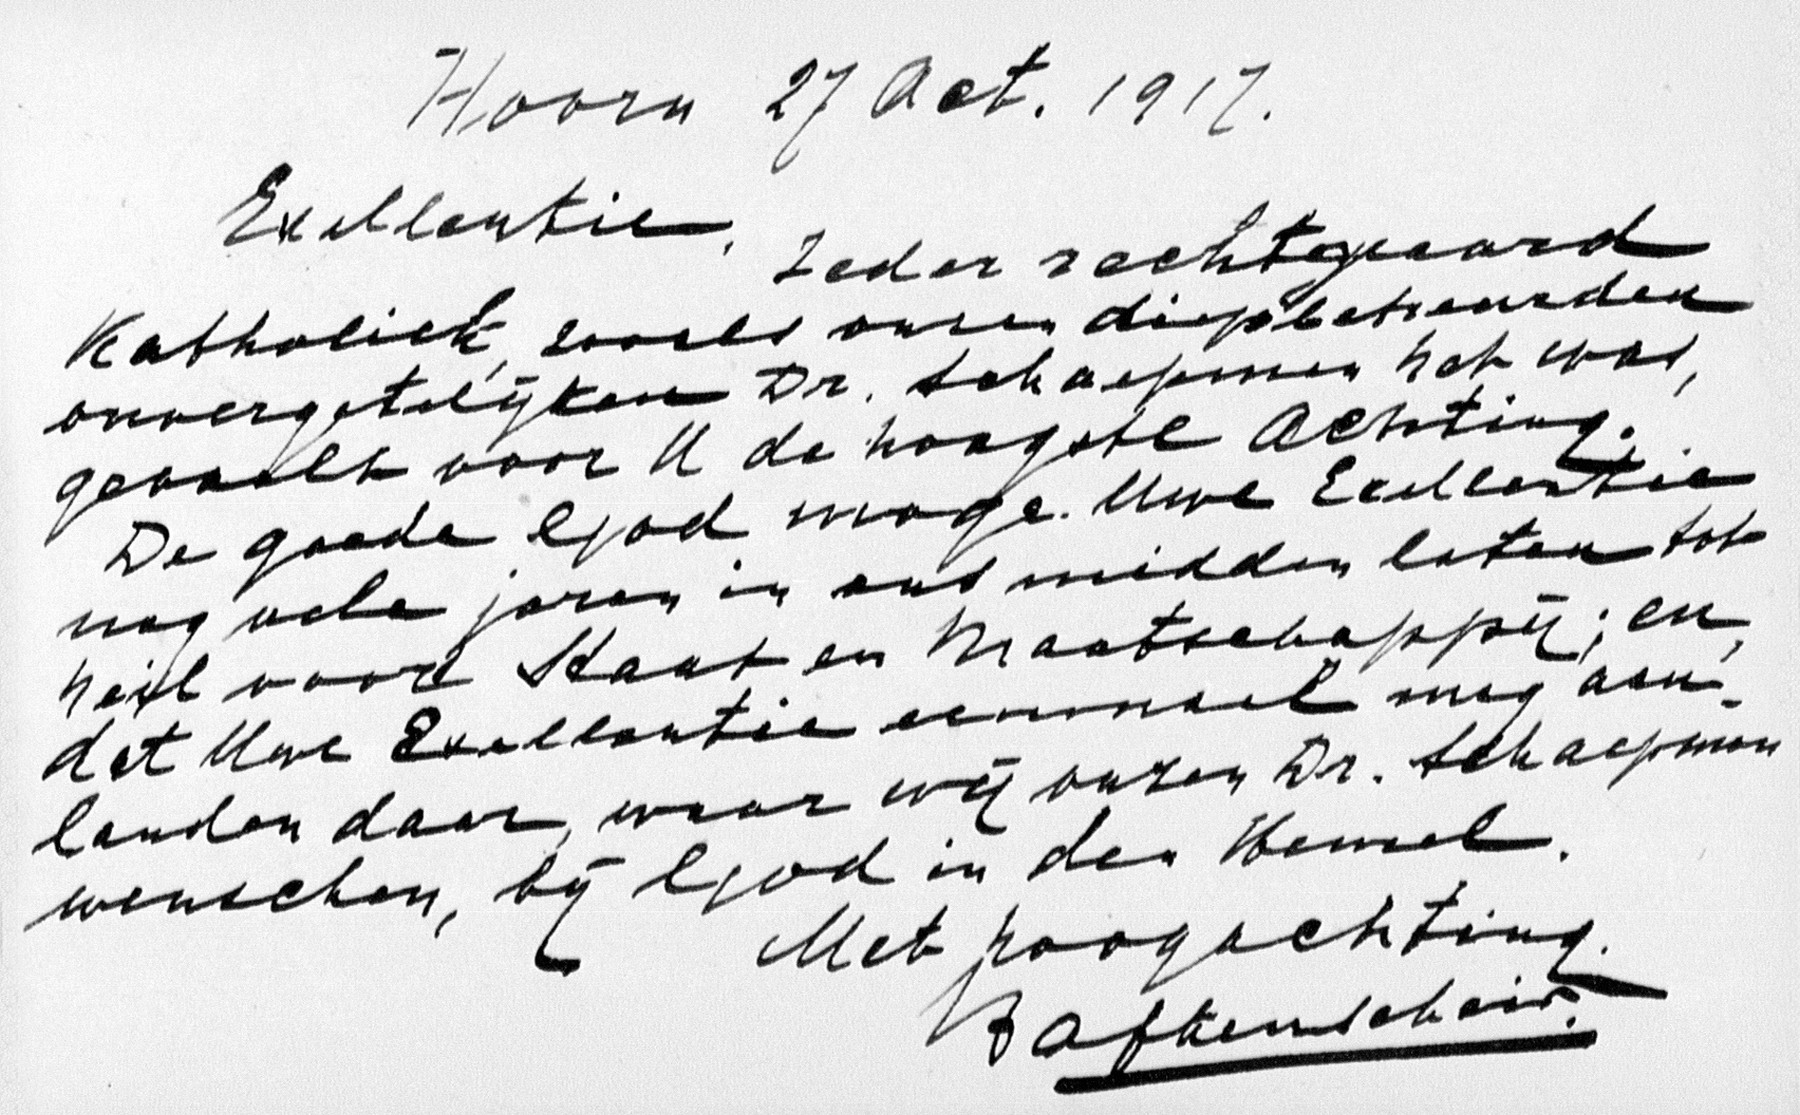 Hoorn 27 Oct. 1917.
Exellentie.
Ieder rechtgeaard
Katholiek, zooals onzen diepbetreurden
onvergetelijken Dr. Schaepmen het was,
gevoelt voor U de hoogste Achting.
De goede God moge. Uwe Exellentie
nog vele jaren in ons midden laten tot
heil voor Staat en Maatschappij; en,
dat Uwe Exellentie eenmael mag aan-
landen daar, waar wij onzen Dr. Schaepmen
wenschen, bij God in den Hemel.
Met hoogachting.